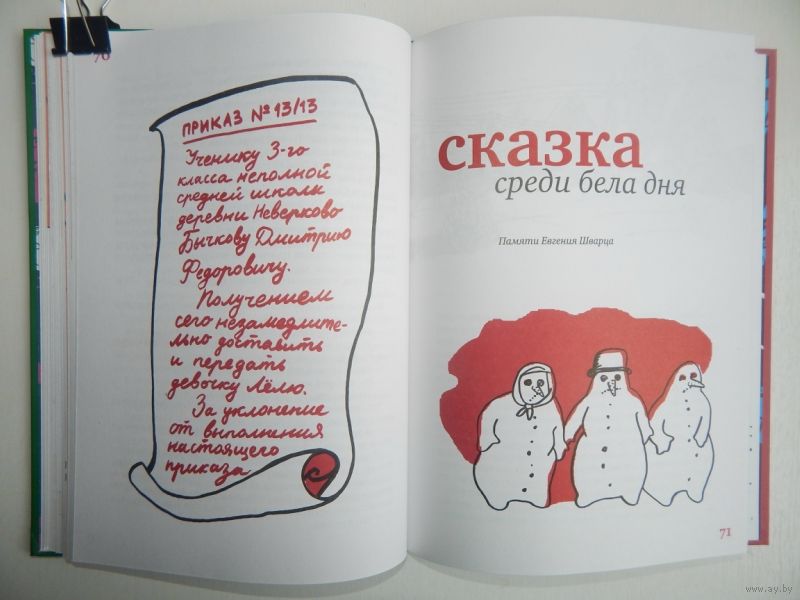 70
ПРИКАЗ № 13/13
Ученику 3-го
класса неполной
средней школы
деревни Неверково
Бычкову Дмитрию
Федоровичу.
Получением
сего незамедлите-
льно доставить
и передать
девочку Лёлю.
За уклонение
от выполнения
настоящего
приказа
сказка
среди бела дня
Памяти Евгения Шварца
71
www.ay.by